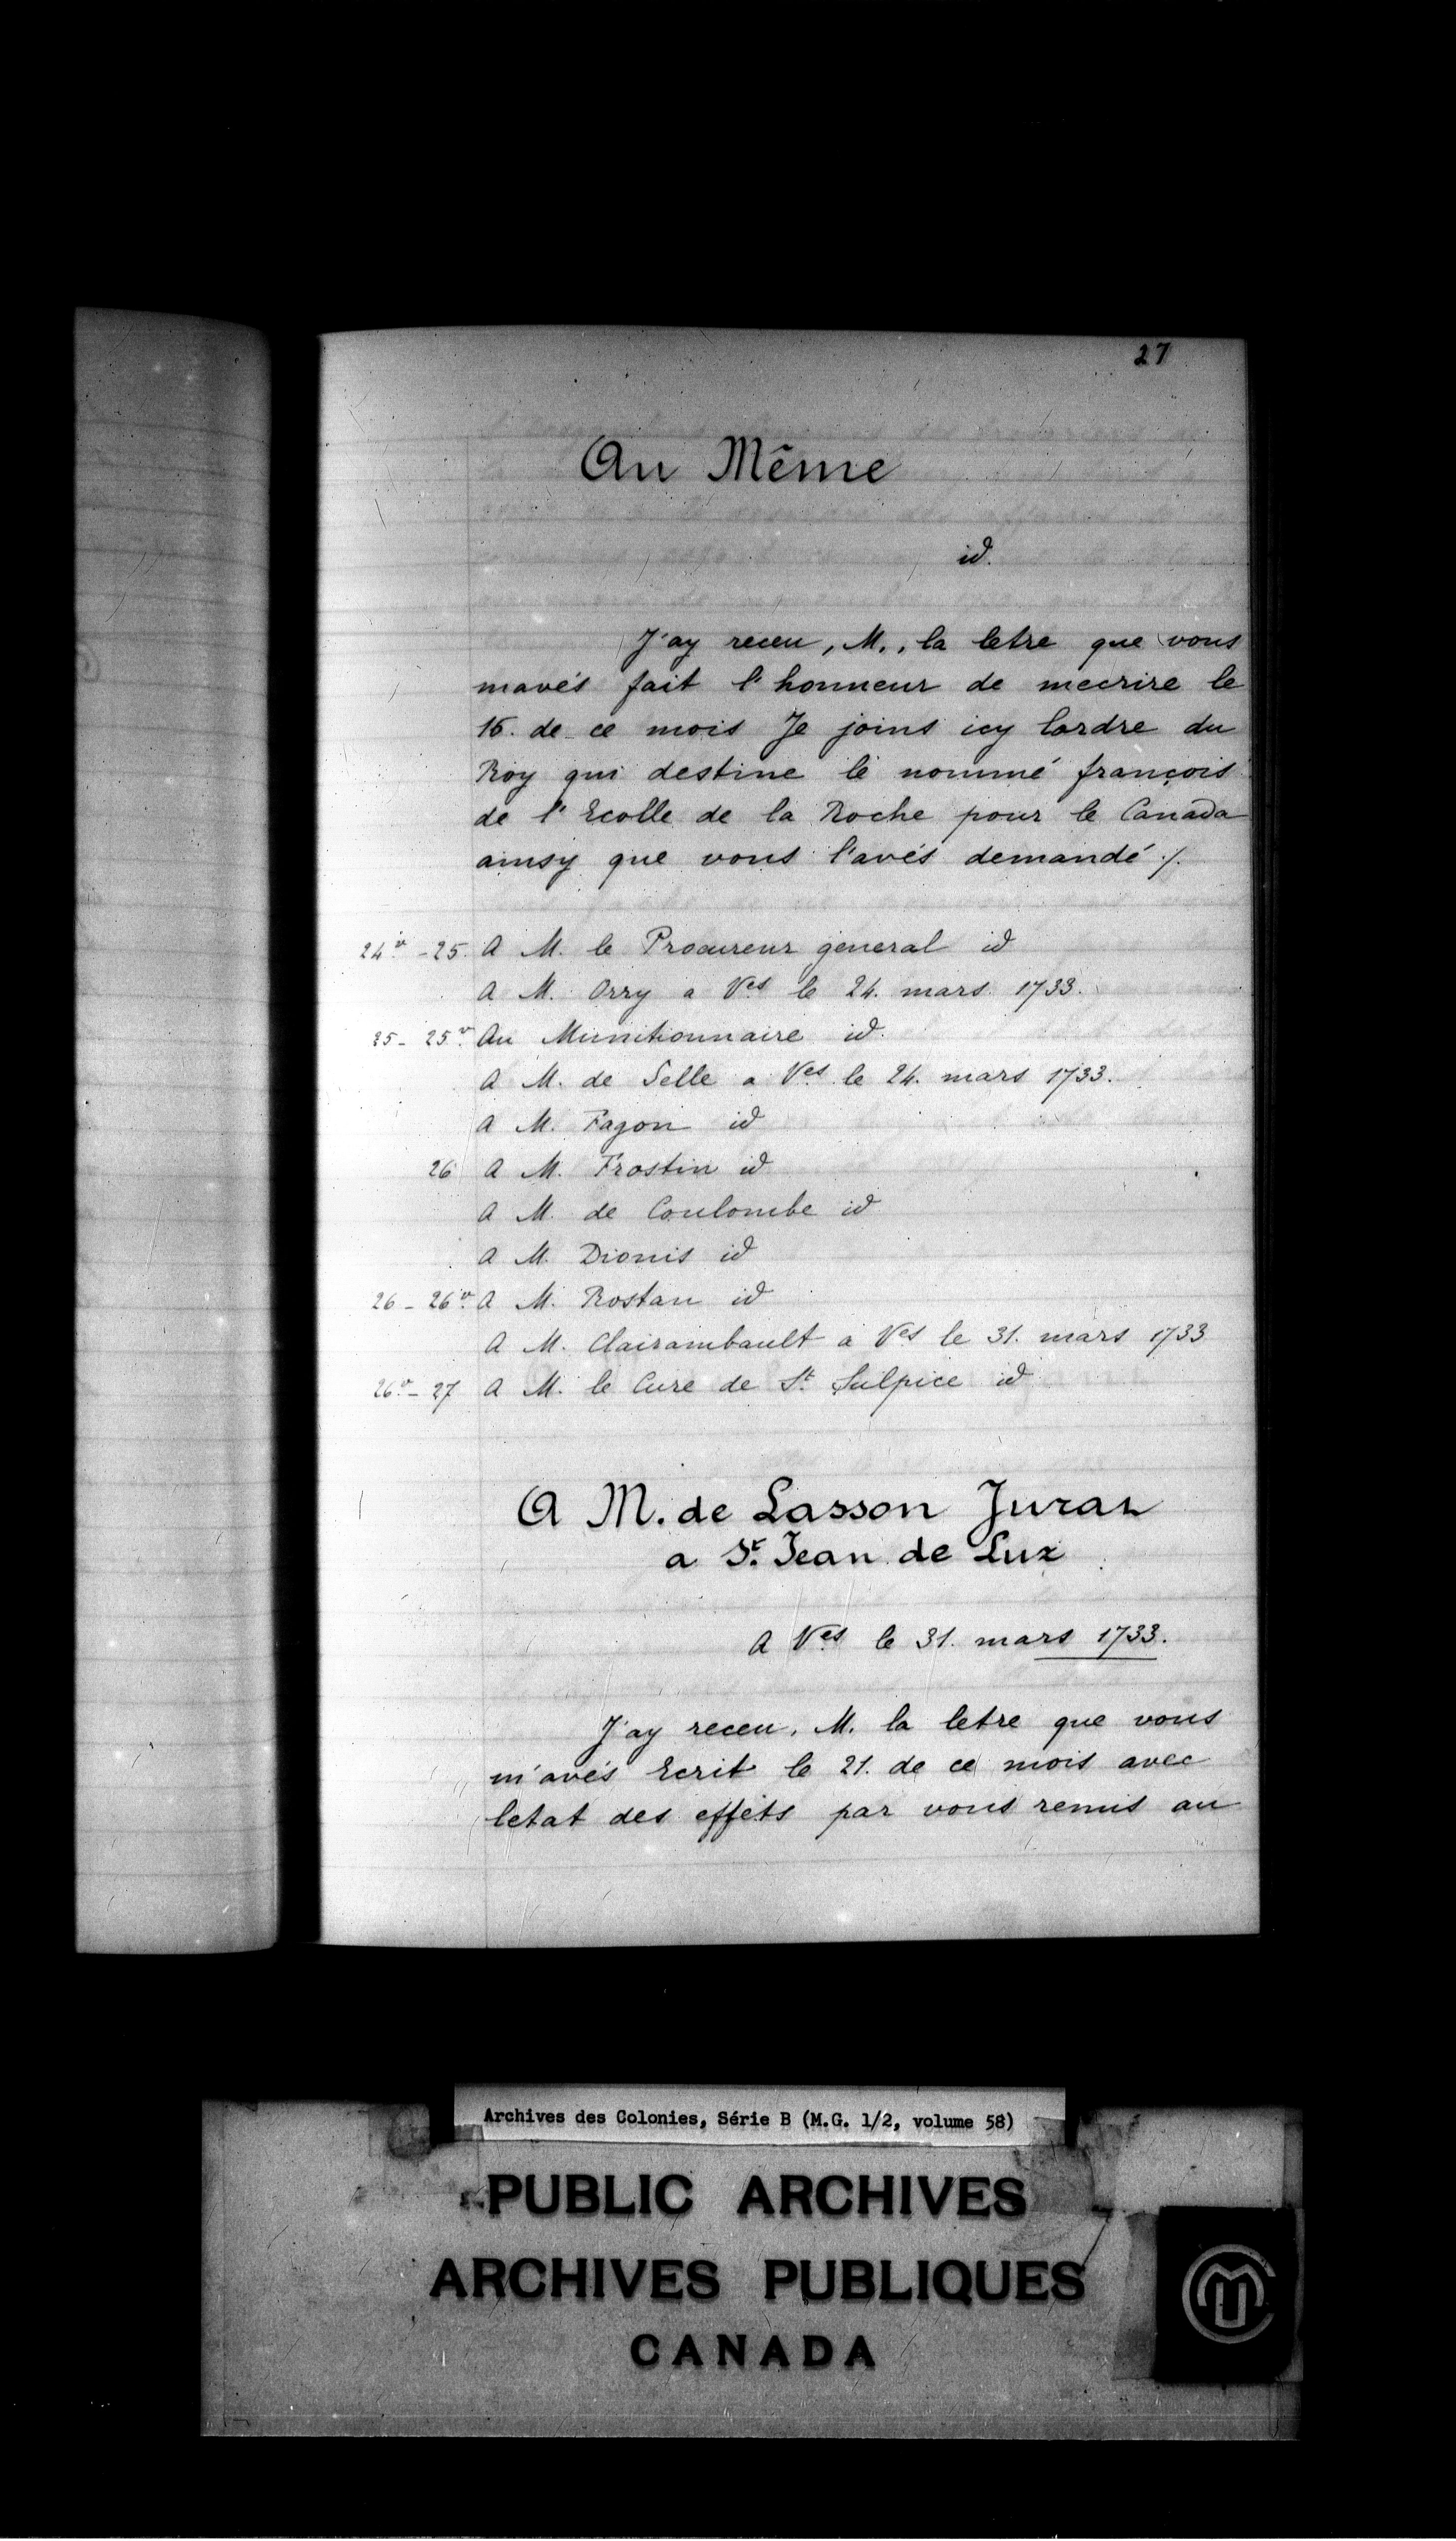 27
Au Même
id.
J'ay receu, M., la letre que vous
mavés fait l'honneur de mecrire le
16. de ce mois Je joins icy lordre du
Roy qui destine le nommé françois
de l'Ecolle de la Roche pour le Canada
ainsy que vous l'avés demandé ./.
24v. - 25. A M. le Procureur general id
A M. Orry a Ves le 24. mars 1733.
25 - 25v. Au Munitionnaire id.
A M. de Selle a Ves le 24. mars 1733.
A M. Fagon id
26 A M. Frostin id
A M. de Coulombe id
A M. Dionis id
26 - 26v. A M. Rostan id
A M. Clairambault a Ves le 31. mars 1733
26v. - 27 A M. le Cure de St. Sulpice id
A M. de Lasson
a St. Jean de Luz
A Ves le 31. mars 1733.
J'ay receu, M. la letre que vous
m'avés Ecrit le 21. de ce mois avec
letat des effets par vous remis au
Archives des Colonies, Série B (M.G. 1/2, volume 58)
PUBLIC ARCHIVES
ARCHIVES PUBLIQUES
CANADA